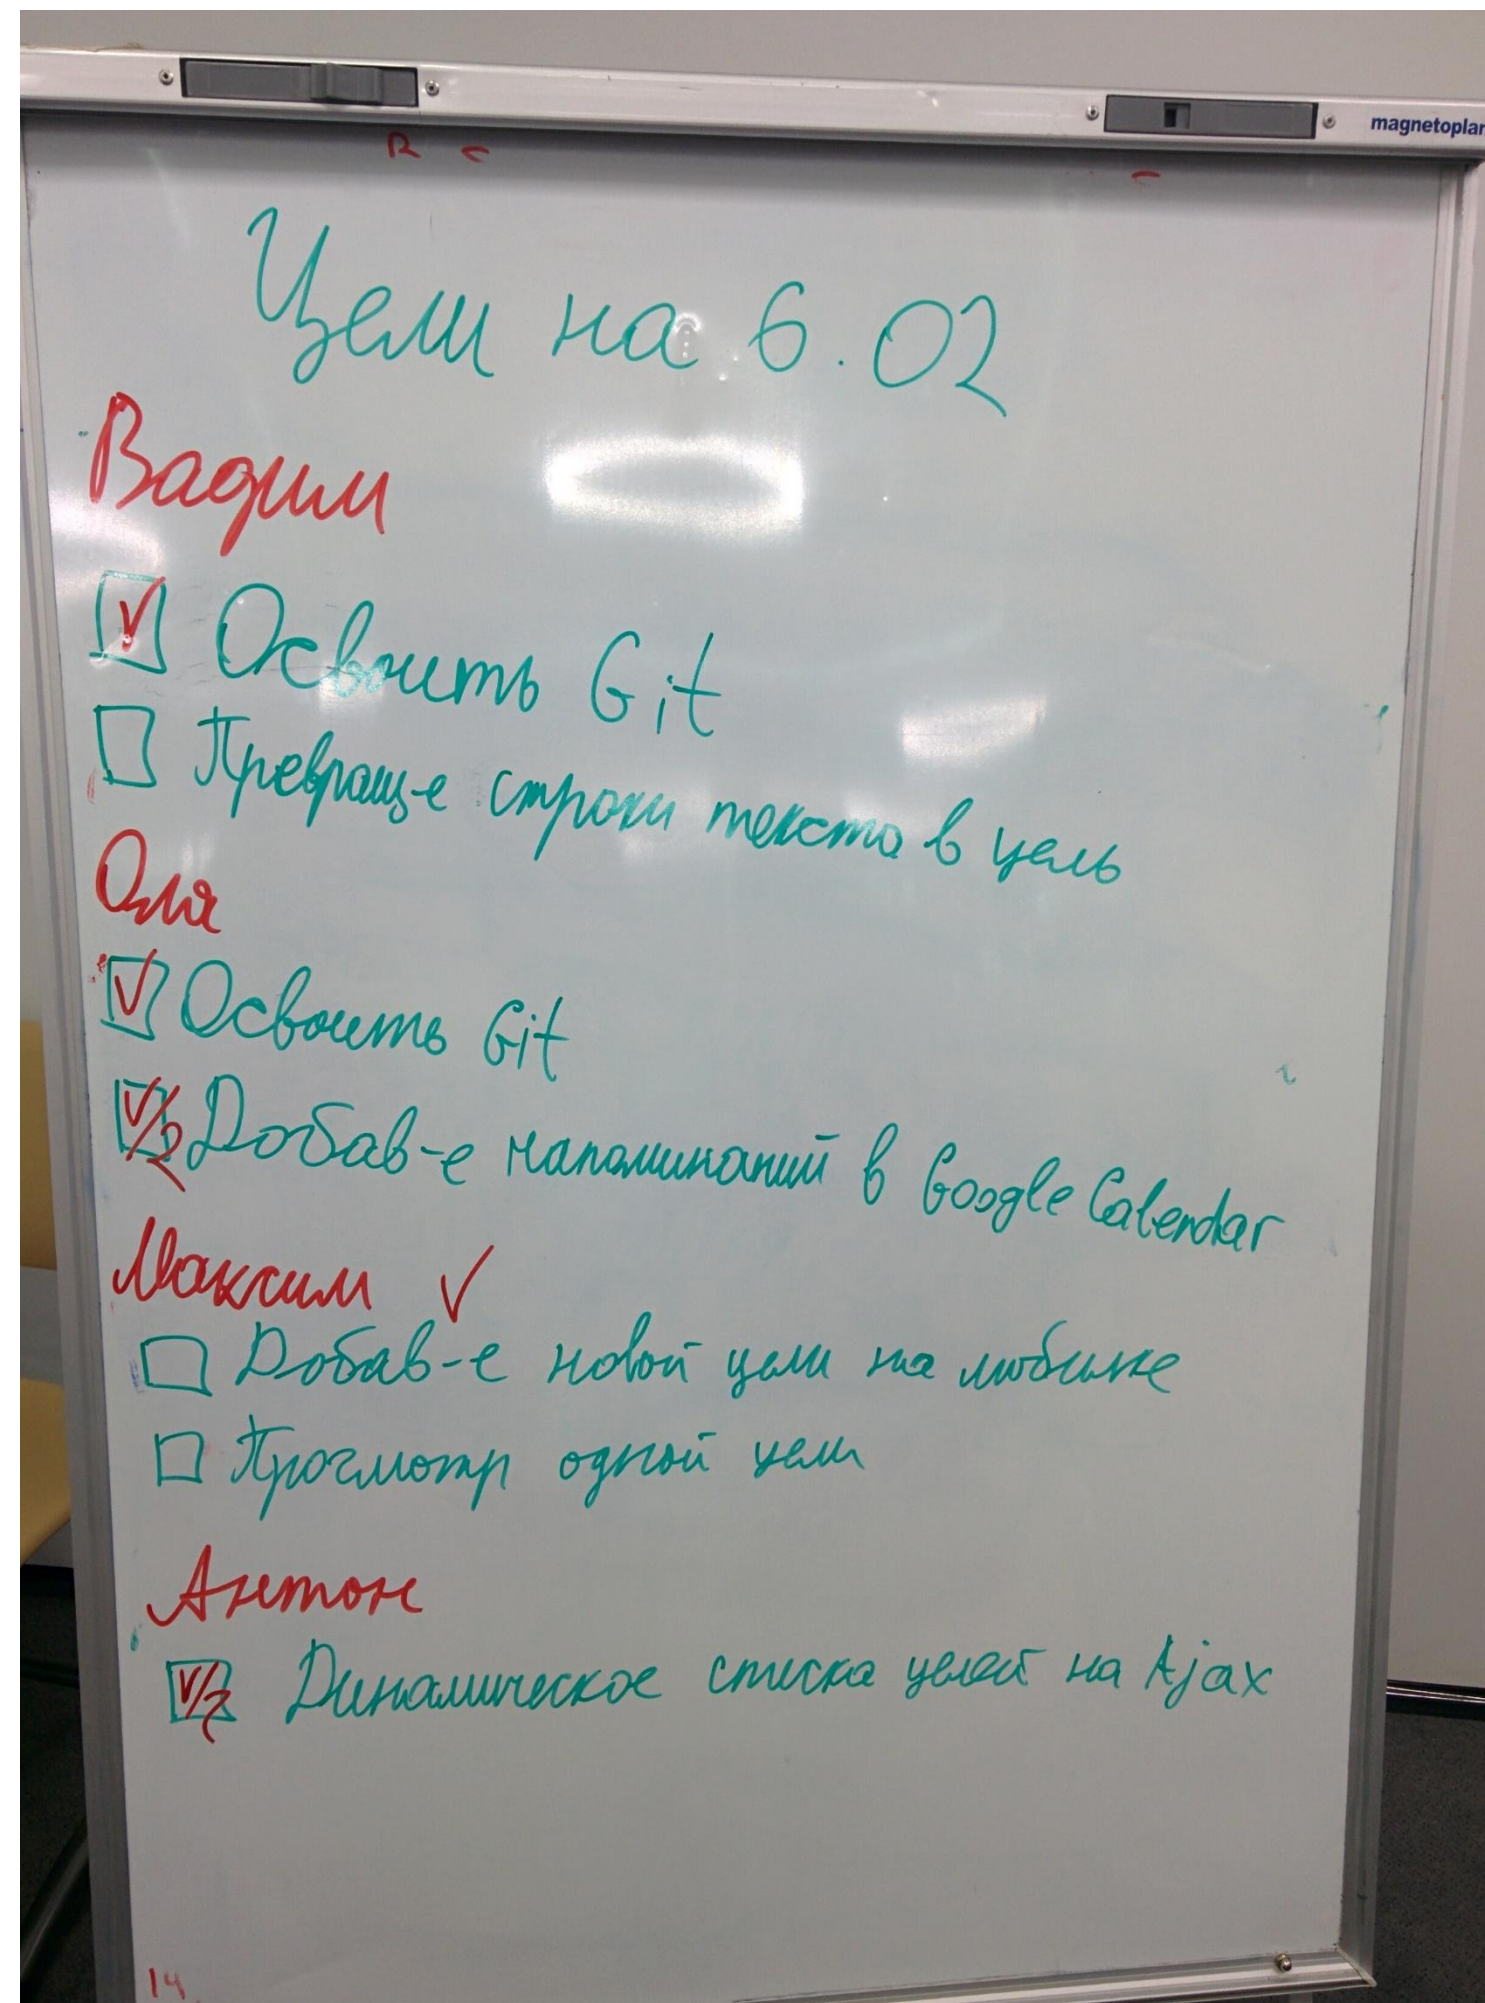 magnetoplan
Цели на 6.02
Вадим
Освоить Git
Превращ-е строки текста в цель
Оля
Освоить Git
V/2 Добав-е напоминаний в Google Calendar
Максим ✓
Добав-е новой цели на мобилке
Просмотр одной цели
Антон
V/2 Динамическое списка целей на Ajax
14